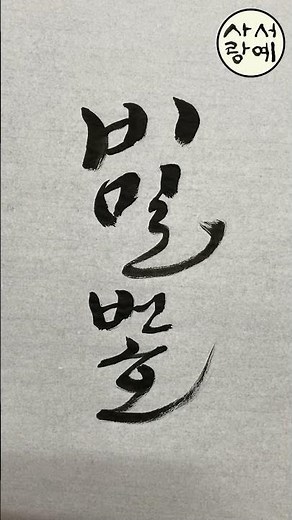 서예
사랑
비밀번호